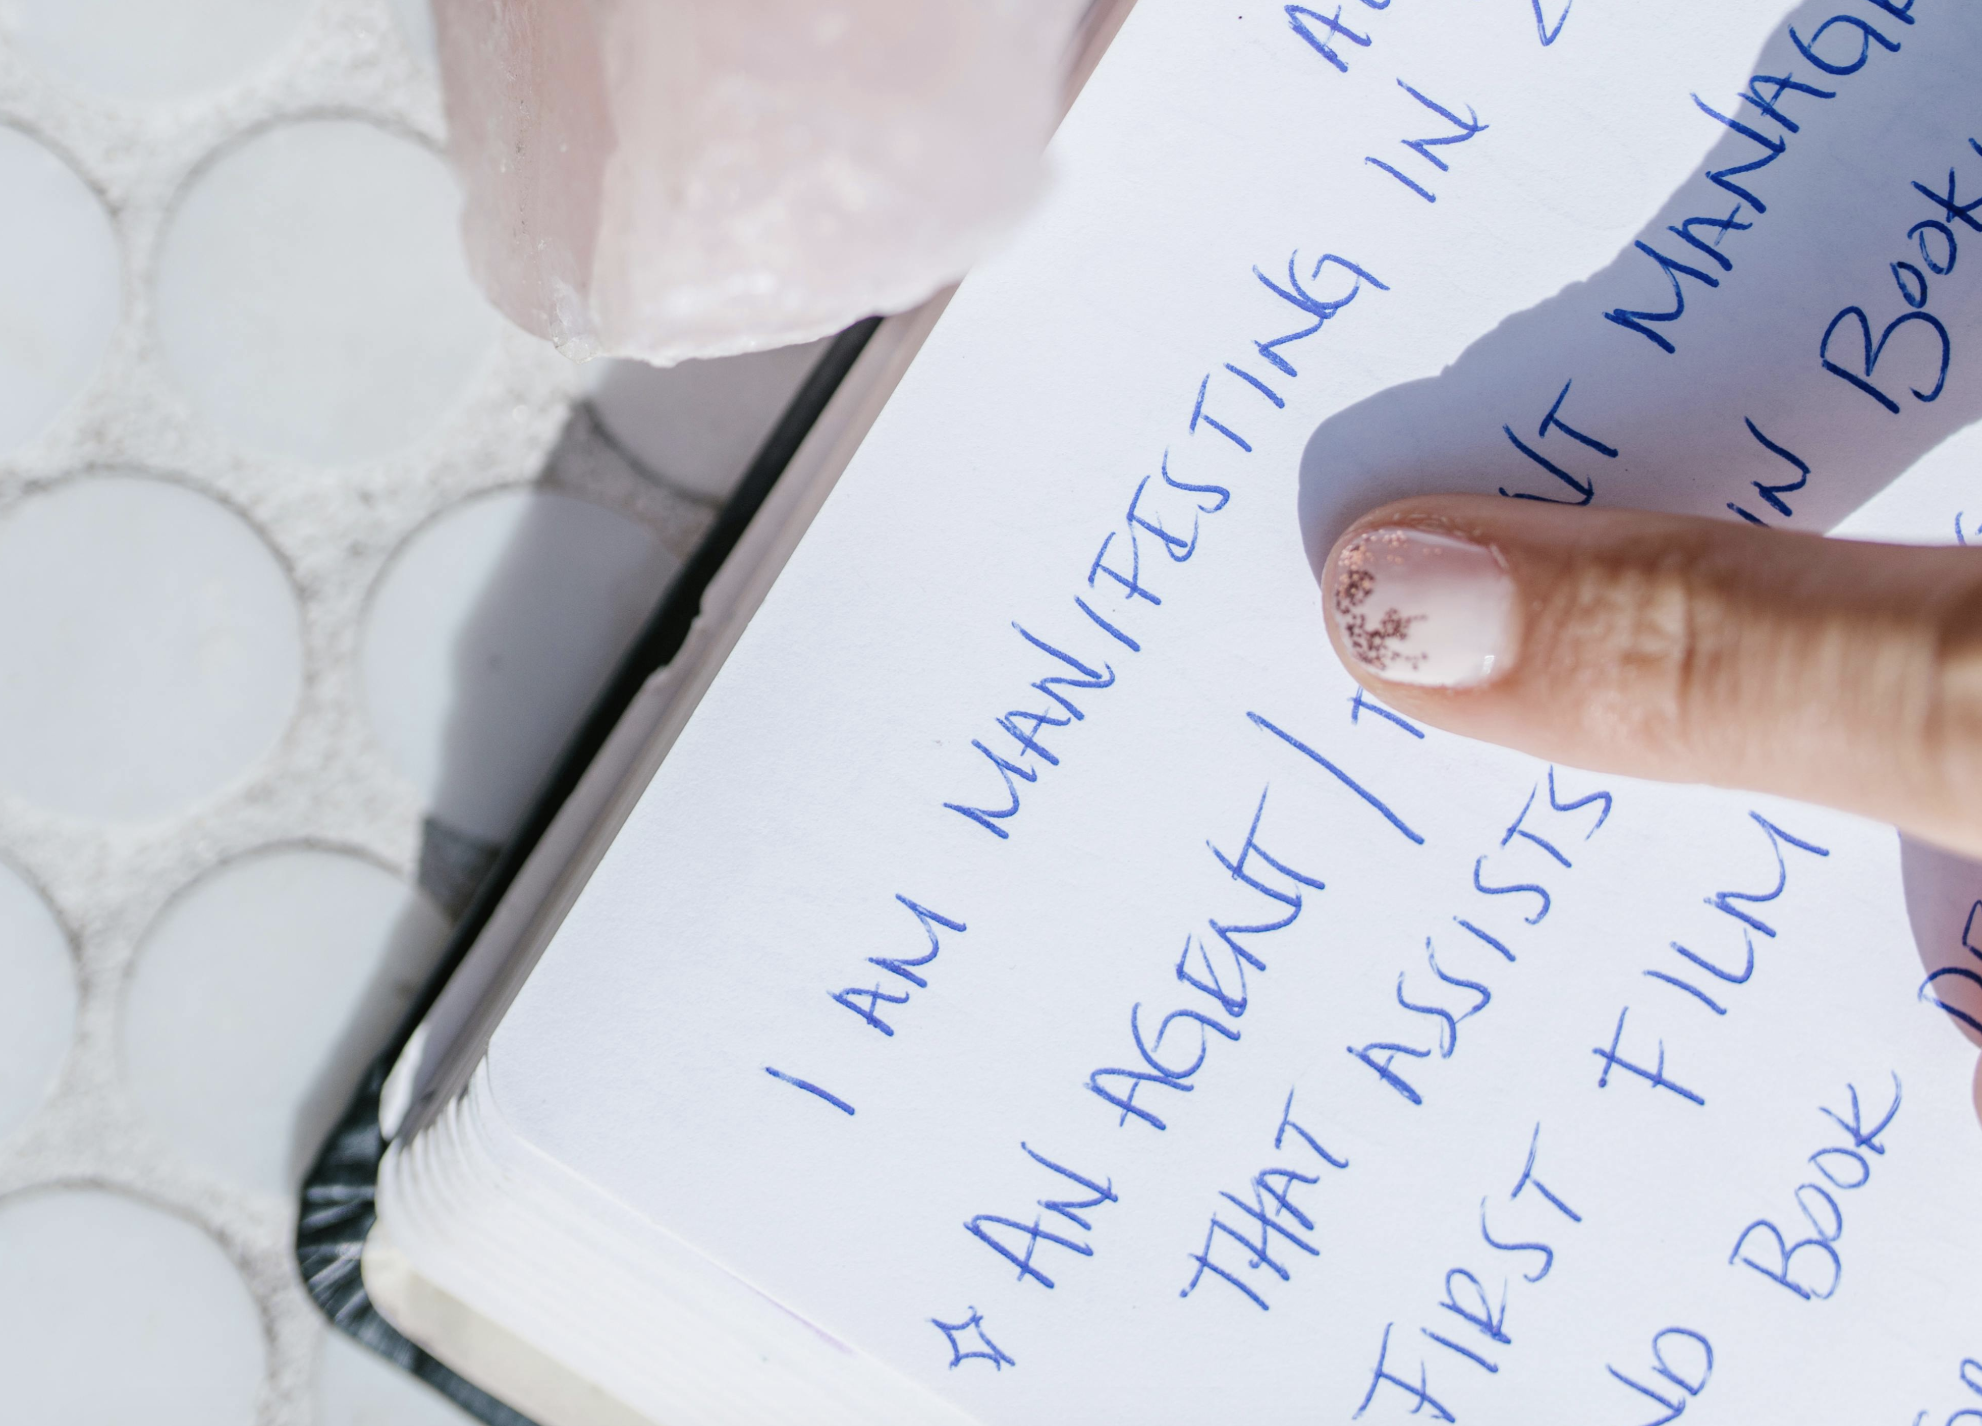 I AM MANIFESTING IN
AN AGENT / T NT MANAGE
THAT ASSISTS IN BOOK
FIRST FILM
ND BOOK